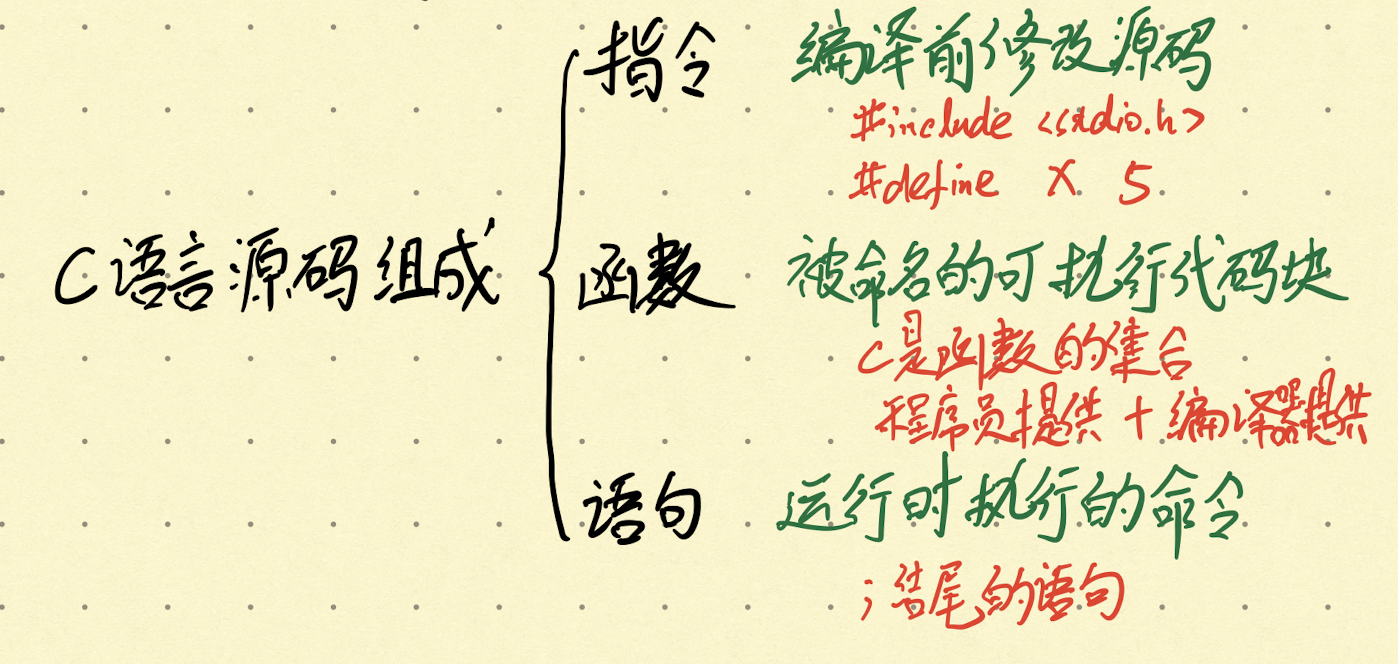 指令 编译前修改源码
#include <stdio.h>
#define X 5
C语言源码组成 函数 被命名的可执行代码块
C是函数的集合
程序员提供 + 编译器提供
语句 运行时执行的命令
; 结尾的语句